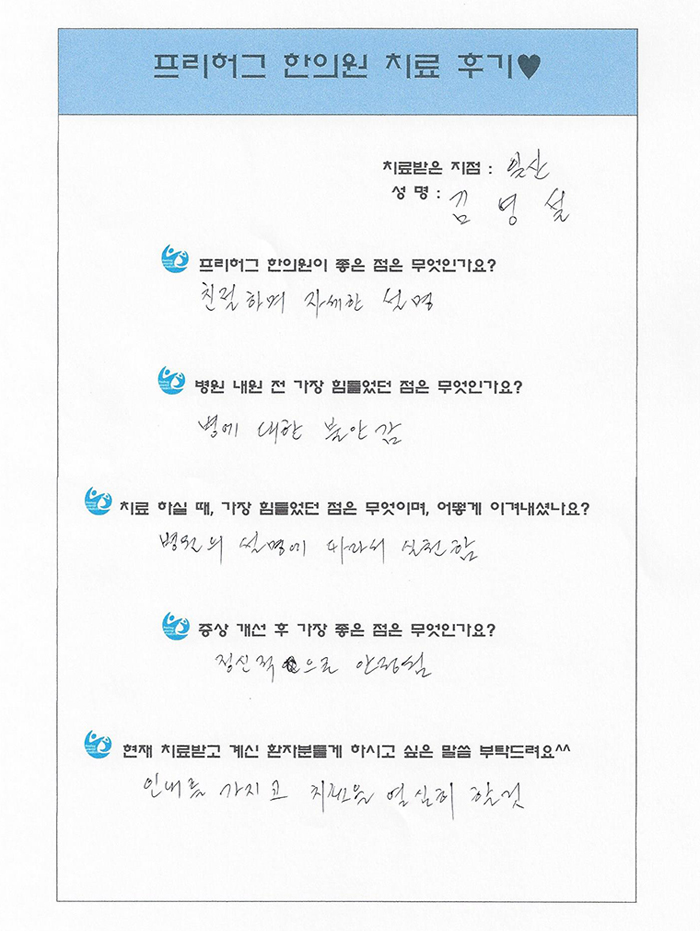 프리허그 한의원 치료 후기♥
치료받은 지점 : 일산
성 명 : 김 영 설
프리허그 한의원이 좋은 점은 무엇인가요?
친절하며 자세한 설명
병원 내원 전 가장 힘들었던 점은 무엇인가요?
병에 대한 불안감
치료 하실 때, 가장 힘들었던 점은 무엇이며, 어떻게 이겨내셨나요?
병원의 설명에 따라서 실천함
증상 개선 후 가장 좋은 점은 무엇인가요?
정신적으로 안정됨
현재 치료받고 계신 환자분들게 하시고 싶은 말씀 부탁드려요^^
인내를 가지고 치료를 열심히 할것